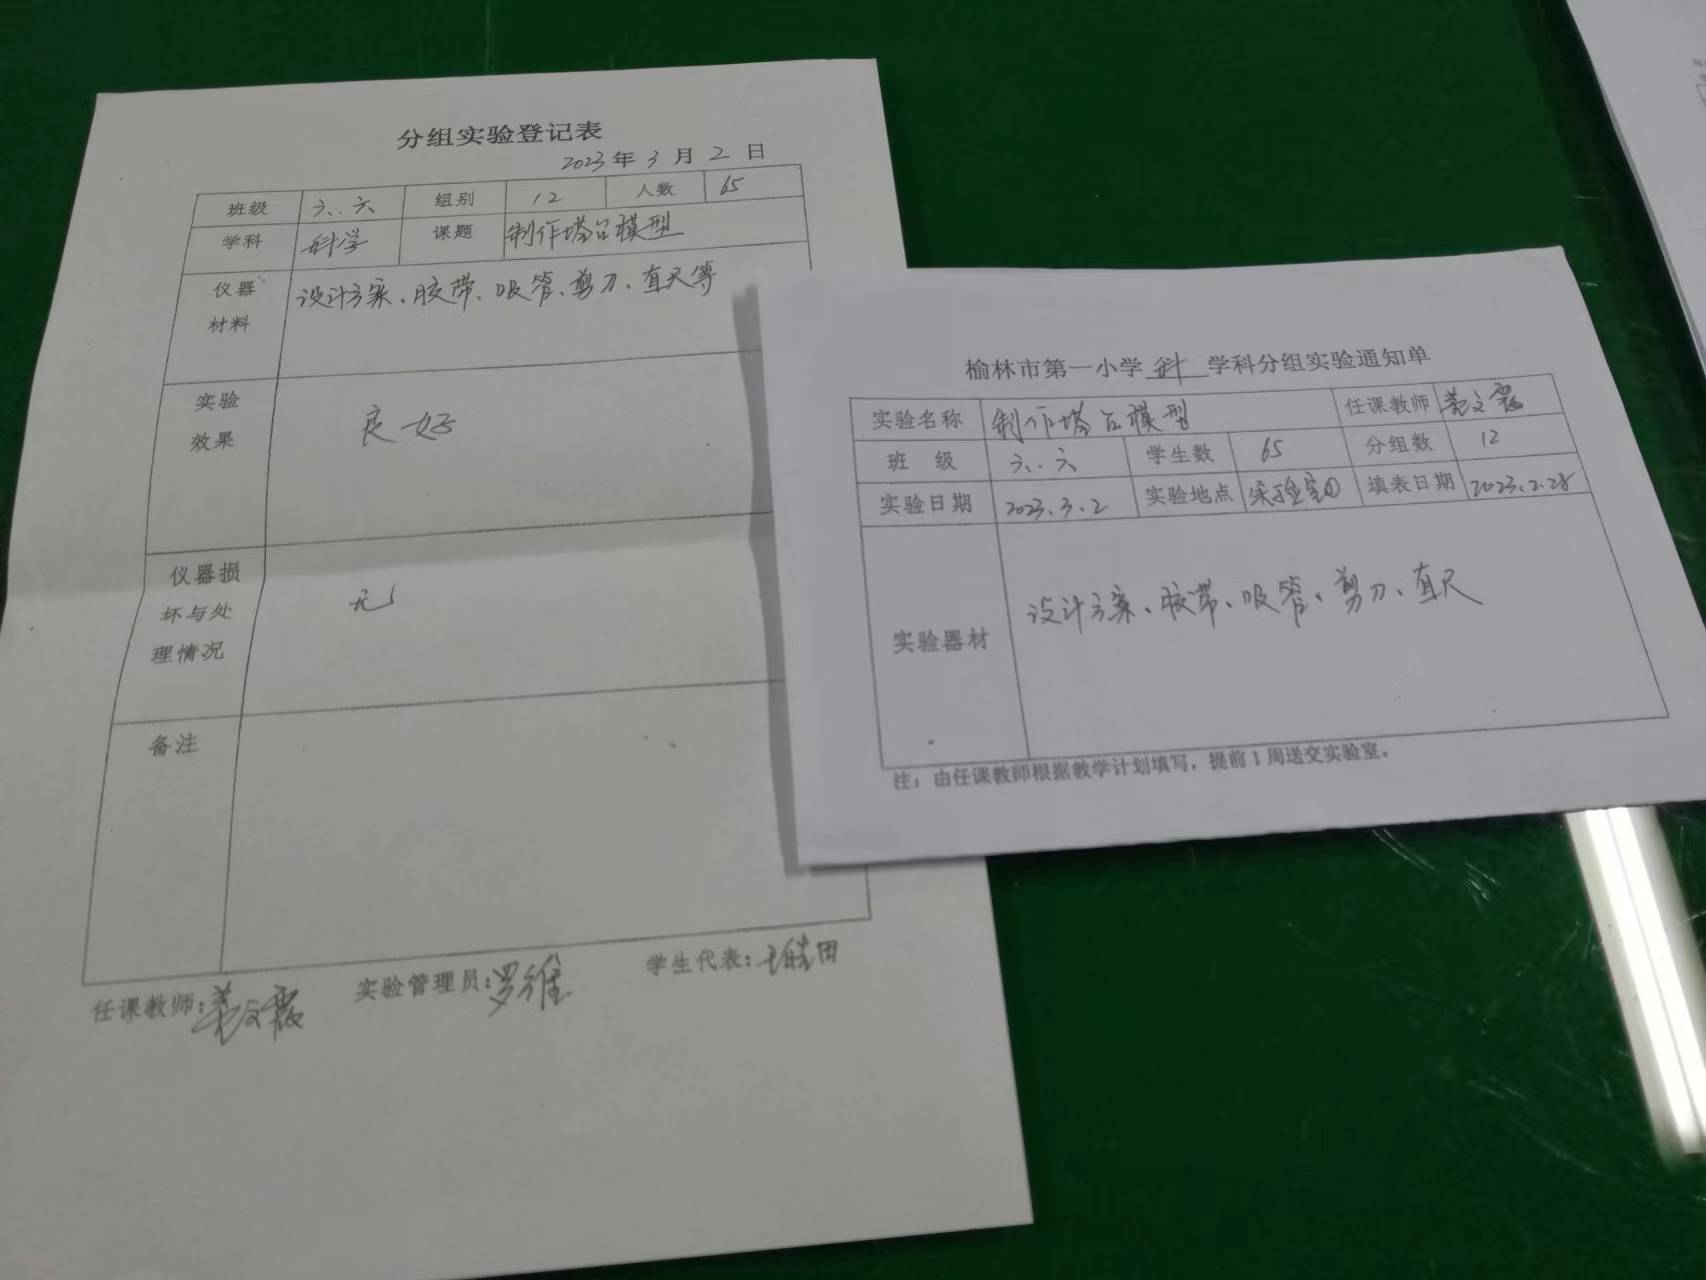 分组实验登记表
2023年3月2日
班级 六.六 组别 12 人数 65
学科 科学 课题 制作塔台模型
仪器材料 设计方案、胶带、吸管、剪刀、直尺等
实验效果 良好
仪器损坏与处理情况 无
备注
任课教师:姜文霞 实验管理员:罗维 学生代表:
榆林市第一小学 科 学科分组实验通知单
实验名称 制作塔台模型 任课教师 姜文霞
班级 六.六 学生数 65 分组数 12
实验日期 2023.3.2 实验地点 实验室① 填表日期 2023.2.28
实验器材 设计方案、胶带、吸管、剪刀、直尺
注:由任课教师根据教学计划填写,提前1周送交实验室。